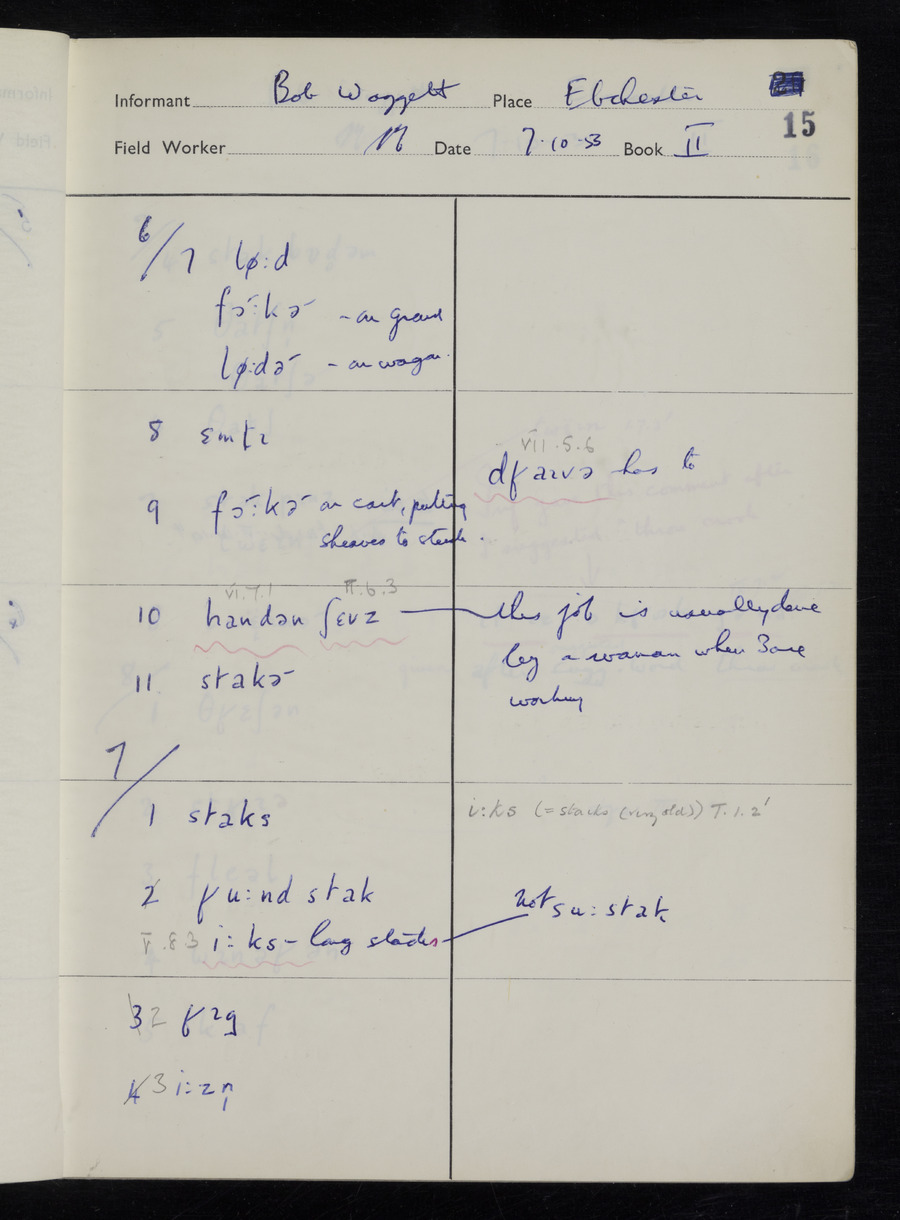 Informant Bob Waggett Place Ebchester
15
Field Worker Date 7·10·53 Book II
6/7 lø:d
fɔ̄:kə – on ground
lø:də – on wagon.
8 ɛmtɪ
VII.5.6
dʁaɪvə has to
9 fɔ̄:kə on cart, putting
sheaves to stack.
VI.7.1 II.6.3
10 handən ʃɛvz — this job is usually done
by a woman when 3 are
working
11 stakə
7/
1 staks
i:ks (= stacks (very old)) T.1.2'
2 ʁu:nd stak
not su: stak
V.8 3 i:ks – long stacks
3 2 ʁɪg
4 3 i:zn̩